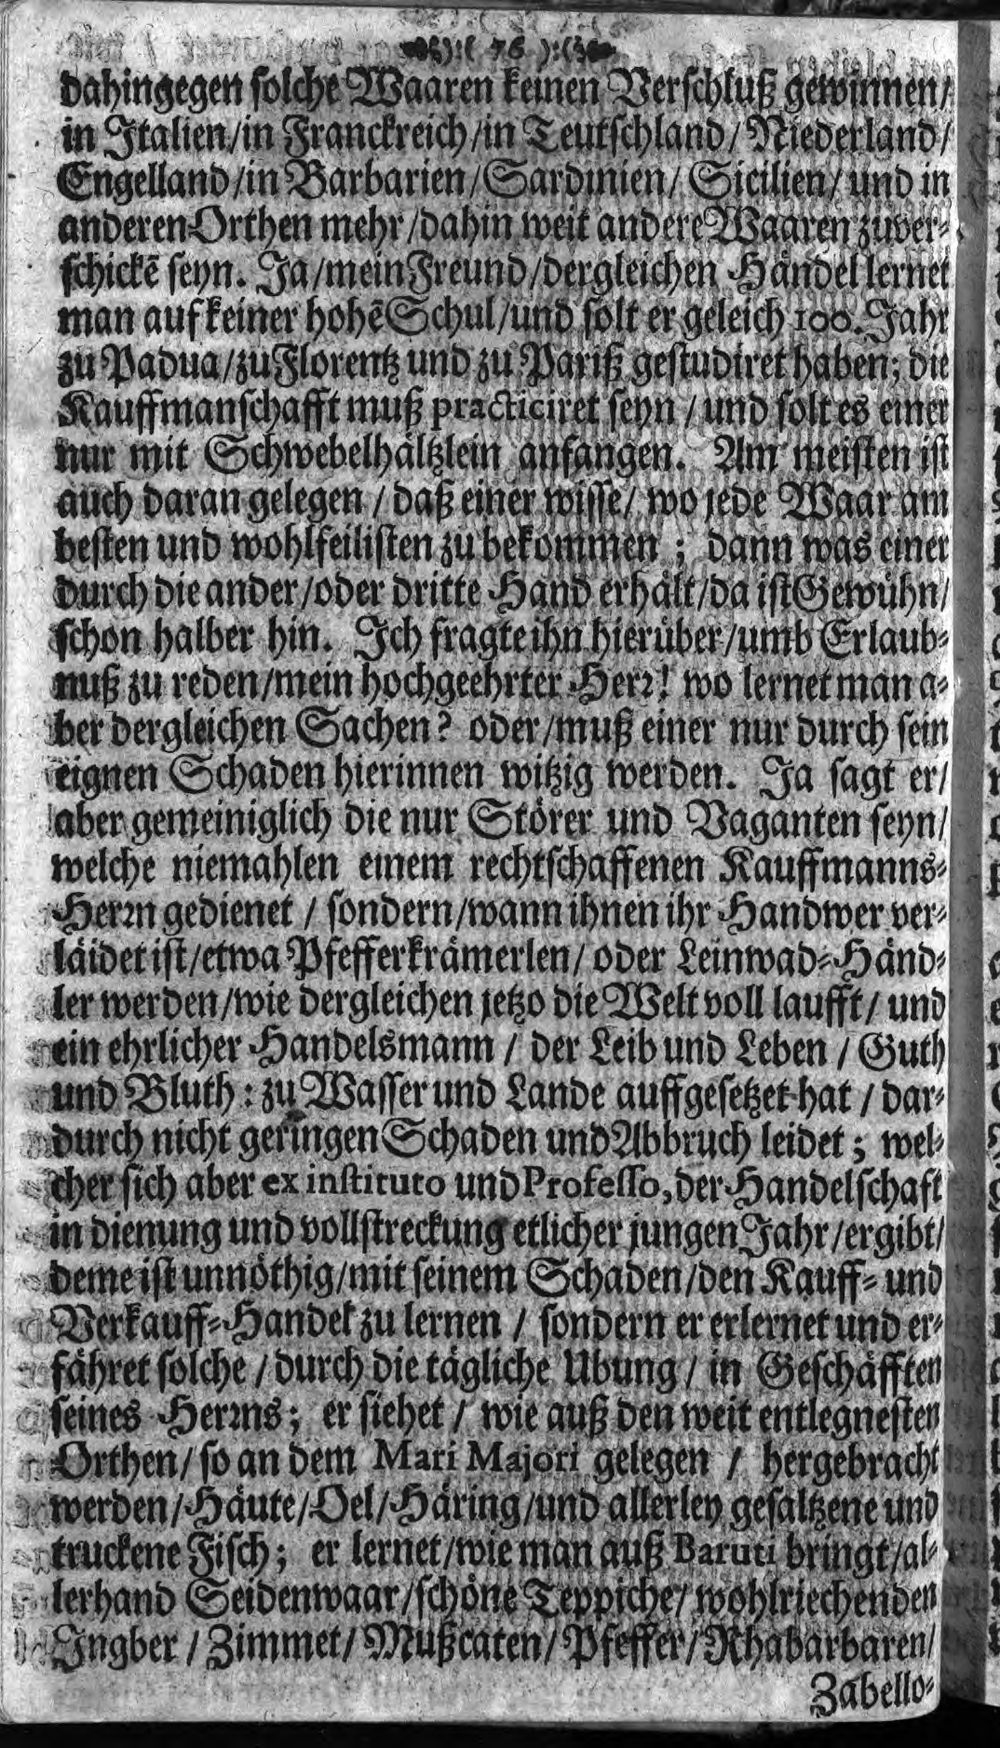 ):( 76 ):(
dahingegen solche Waaren keinen Verschluß gewinnen/
in Italien/in Franckreich/in Teutschland/Niederland/
Engelland/in Barbarien/Sardinien/ Sicilien/ und in
anderen Orthen mehr/dahin weit andere Waaren zuver-
schickē seyn. Ja/mein Freund/dergleichen Händel lernet
man auf keiner hohē Schul/und solt er geleich 100. Jahr
zu Padua/zu Florentz und zu Pariß gestudiret haben; die
Kauffmanschafft muß practiciret seyn / und solt es einer
nur mit Schwebelhältzlein anfangen. Am meisten ist
auch daran gelegen / daß einer wisse/ wo jede Waar am
besten und wohlfeilisten zu bekommen ; dann was einer
durch die ander/oder dritte Hand erhält/da ist Gewühn/
schon halber hin. Ich fragte ihn hierüber/umb Erlaub-
nuß zu reden/mein hochgeehrter Herr! wo lernet man a-
ber dergleichen Sachen? oder/muß einer nur durch sein
eignen Schaden hierinnen witzig werden. Ja sagt er/
aber gemeiniglich die nur Störer und Vaganten seyn/
welche niemahlen einem rechtschaffenen Kauffmanns-
Herrn gedienet / sondern/wann ihnen ihr Handwer ver-
läidet ist/etwa Pfefferkrämerlen/ oder Leinwad-Händ-
ler werden/wie dergleichen jetzo die Welt voll laufft/ und
ein ehrlicher Handelsmann / der Leib und Leben / Guth
und Bluth: zu Wasser und Lande auffgesetzet hat / dar-
durch nicht geringen Schaden und Abbruch leidet ; wel-
cher sich aber ex instituto und Professo, der Handelschaft
in dienung und vollstreckung etlicher jungen Jahr/ergibt/
deme ist unnöthig/mit seinem Schaden/den Kauff- und
Verkauff-Handel zu lernen / sondern er erlernet und er-
fähret solche / durch die tägliche Ubung / in Geschäfften
seines Herrns; er siehet / wie auß den weit entlegnesten
Orthen/ so an dem Mari Majori gelegen / hergebracht
werden/Häute/Oel/Häring/und allerley gesaltzene und
truckene Fisch; er lernet/wie man auß Baruti bringt/al-
lerhand Seidenwaar/schöne Teppiche/ wohlriechenden
Ingber / Zimmet/ Mußcaten/ Pfeffer/ Rhabarbaren/
Zabello-